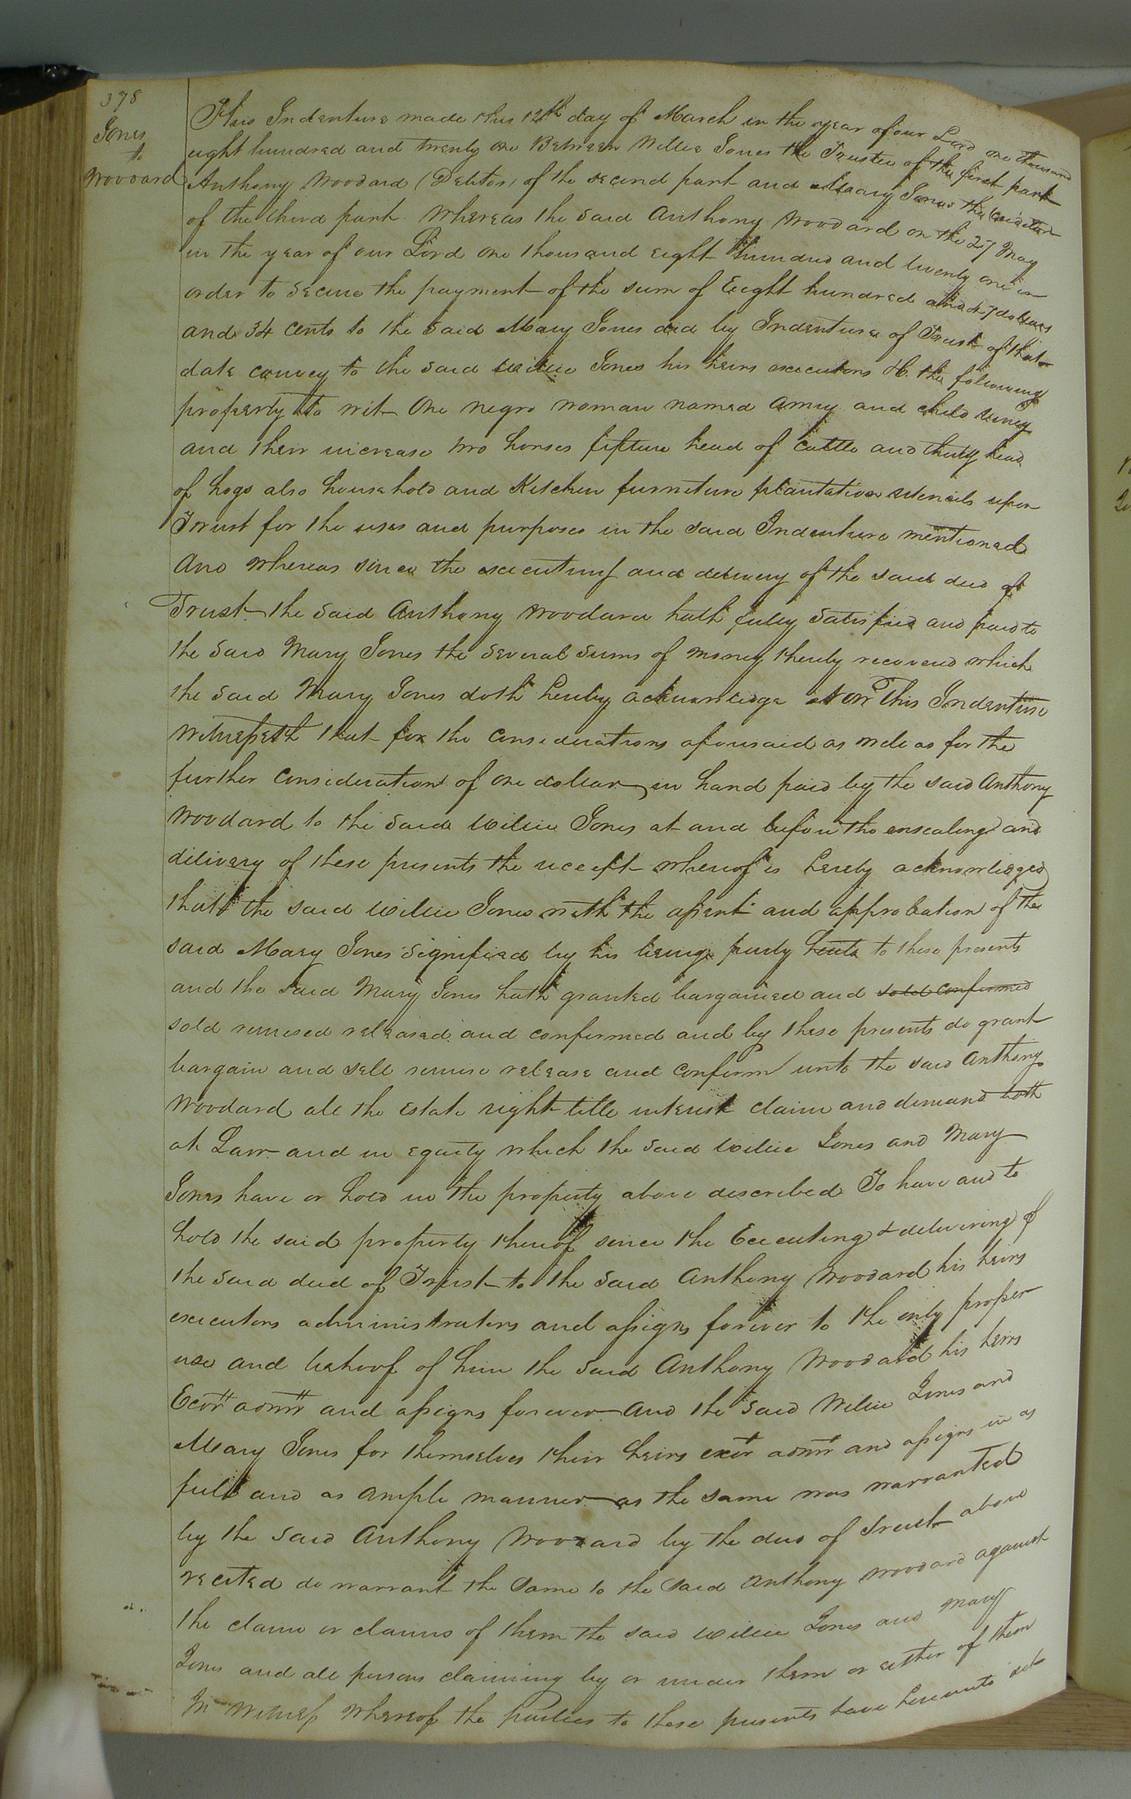 378
Jones
to
Woodard
This Indenture made this 12th day of March in the year of our Lord one thousand
eight hundred and twenty one Between Willie Jones the Trustee of the first part
Anthony Woodard (Debtor) of the second part and Mary Jones the Creditor
of the third part Whereas the said Anthony Woodard on the 27 May
in the year of our Lord one thousand eight hundred and twenty one in
order to secure the payment of the sum of Eight hundred and 47 dollars
and 34 cents to the said Mary Jones did by Indenture of Trust of that
date convey to the said Willie Jones his heirs executors &c the following
property to wit One negro woman named Amy and child
and their increase two horses fifteen head of Cattle and thirty head
of hogs also household and Kitchen furniture plantation utensils upon
Trust for the uses and purposes in the said Indenture mentioned
And whereas since the executing and delivery of the said deed of
Trust the said Anthony Woodard hath fuley satisfied and paid to
the said Mary Jones the several sums of money thereby recovered which
the said Mary Jones doth hereby acknowledge This Indenture
Witnesseth that for the considerations aforesaid as well as for the
further consideration of one dollar in hand paid by the said Anthony
Woodard to the said Willie Jones at and before the ensealing and
dilivery of these presents the receipt whereof is hereby acknowledged
that the said Willie Jones with the assent and approbation of the
said Mary Jones signified by his being party to these presents
and the said Mary Jones hath granted bargained and sold confirmed
sold remised released and confirmed and by these presents do grant
bargain and sell remise release and confirm unto the said Anthony
Woodard all the estate right title interest claim and demand both
at Law and in equity which the said Willie Jones and Mary
Jones have or hold in the property above described To have and to
hold the said property thereof since the Executing & delivering of
the said deed of Trust to the said Anthony Woodard his heirs
executors administrators and assigns forever to the only proper
use and behoof of him the said Anthony Woodard his heirs
Exors admrs and assigns forever And the said Willie Jones and
Mary Jones for themselves their heirs exrs admrs and assigns in as
full and as ample manner as the same was warranted
by the said Anthony Woodard by the deed of Trust above
recited do warrant the same to the said Anthony Woodard against
the claim or claims of them the said Willie Jones and Mary
Jones and all persons claiming by or under them or either of them
In Witness whereof the parties to these presents have hereunto set